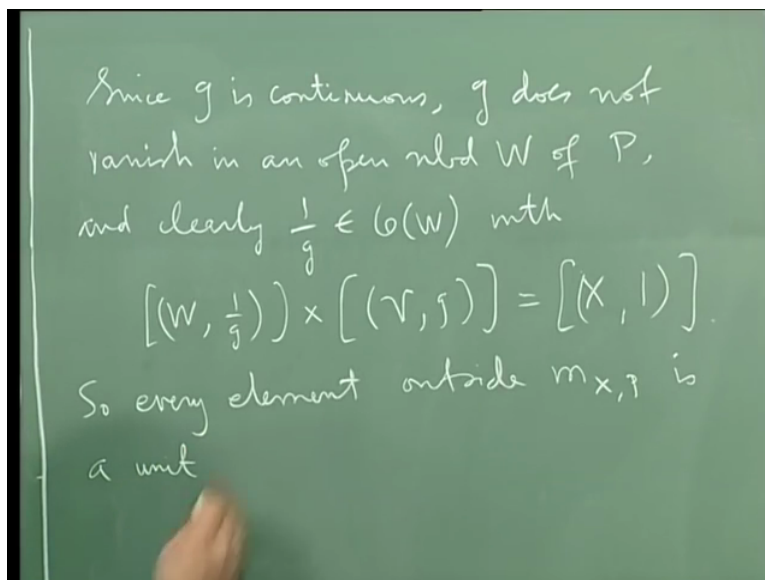 Since g is continuous, g does not
vanish in an open nbd W of P,
and clearly 1/g ∈ O(W) with
[(W, 1/g)] × [(V, g)] = [(X, 1)].
So every element outside m_{X,P} is
a unit